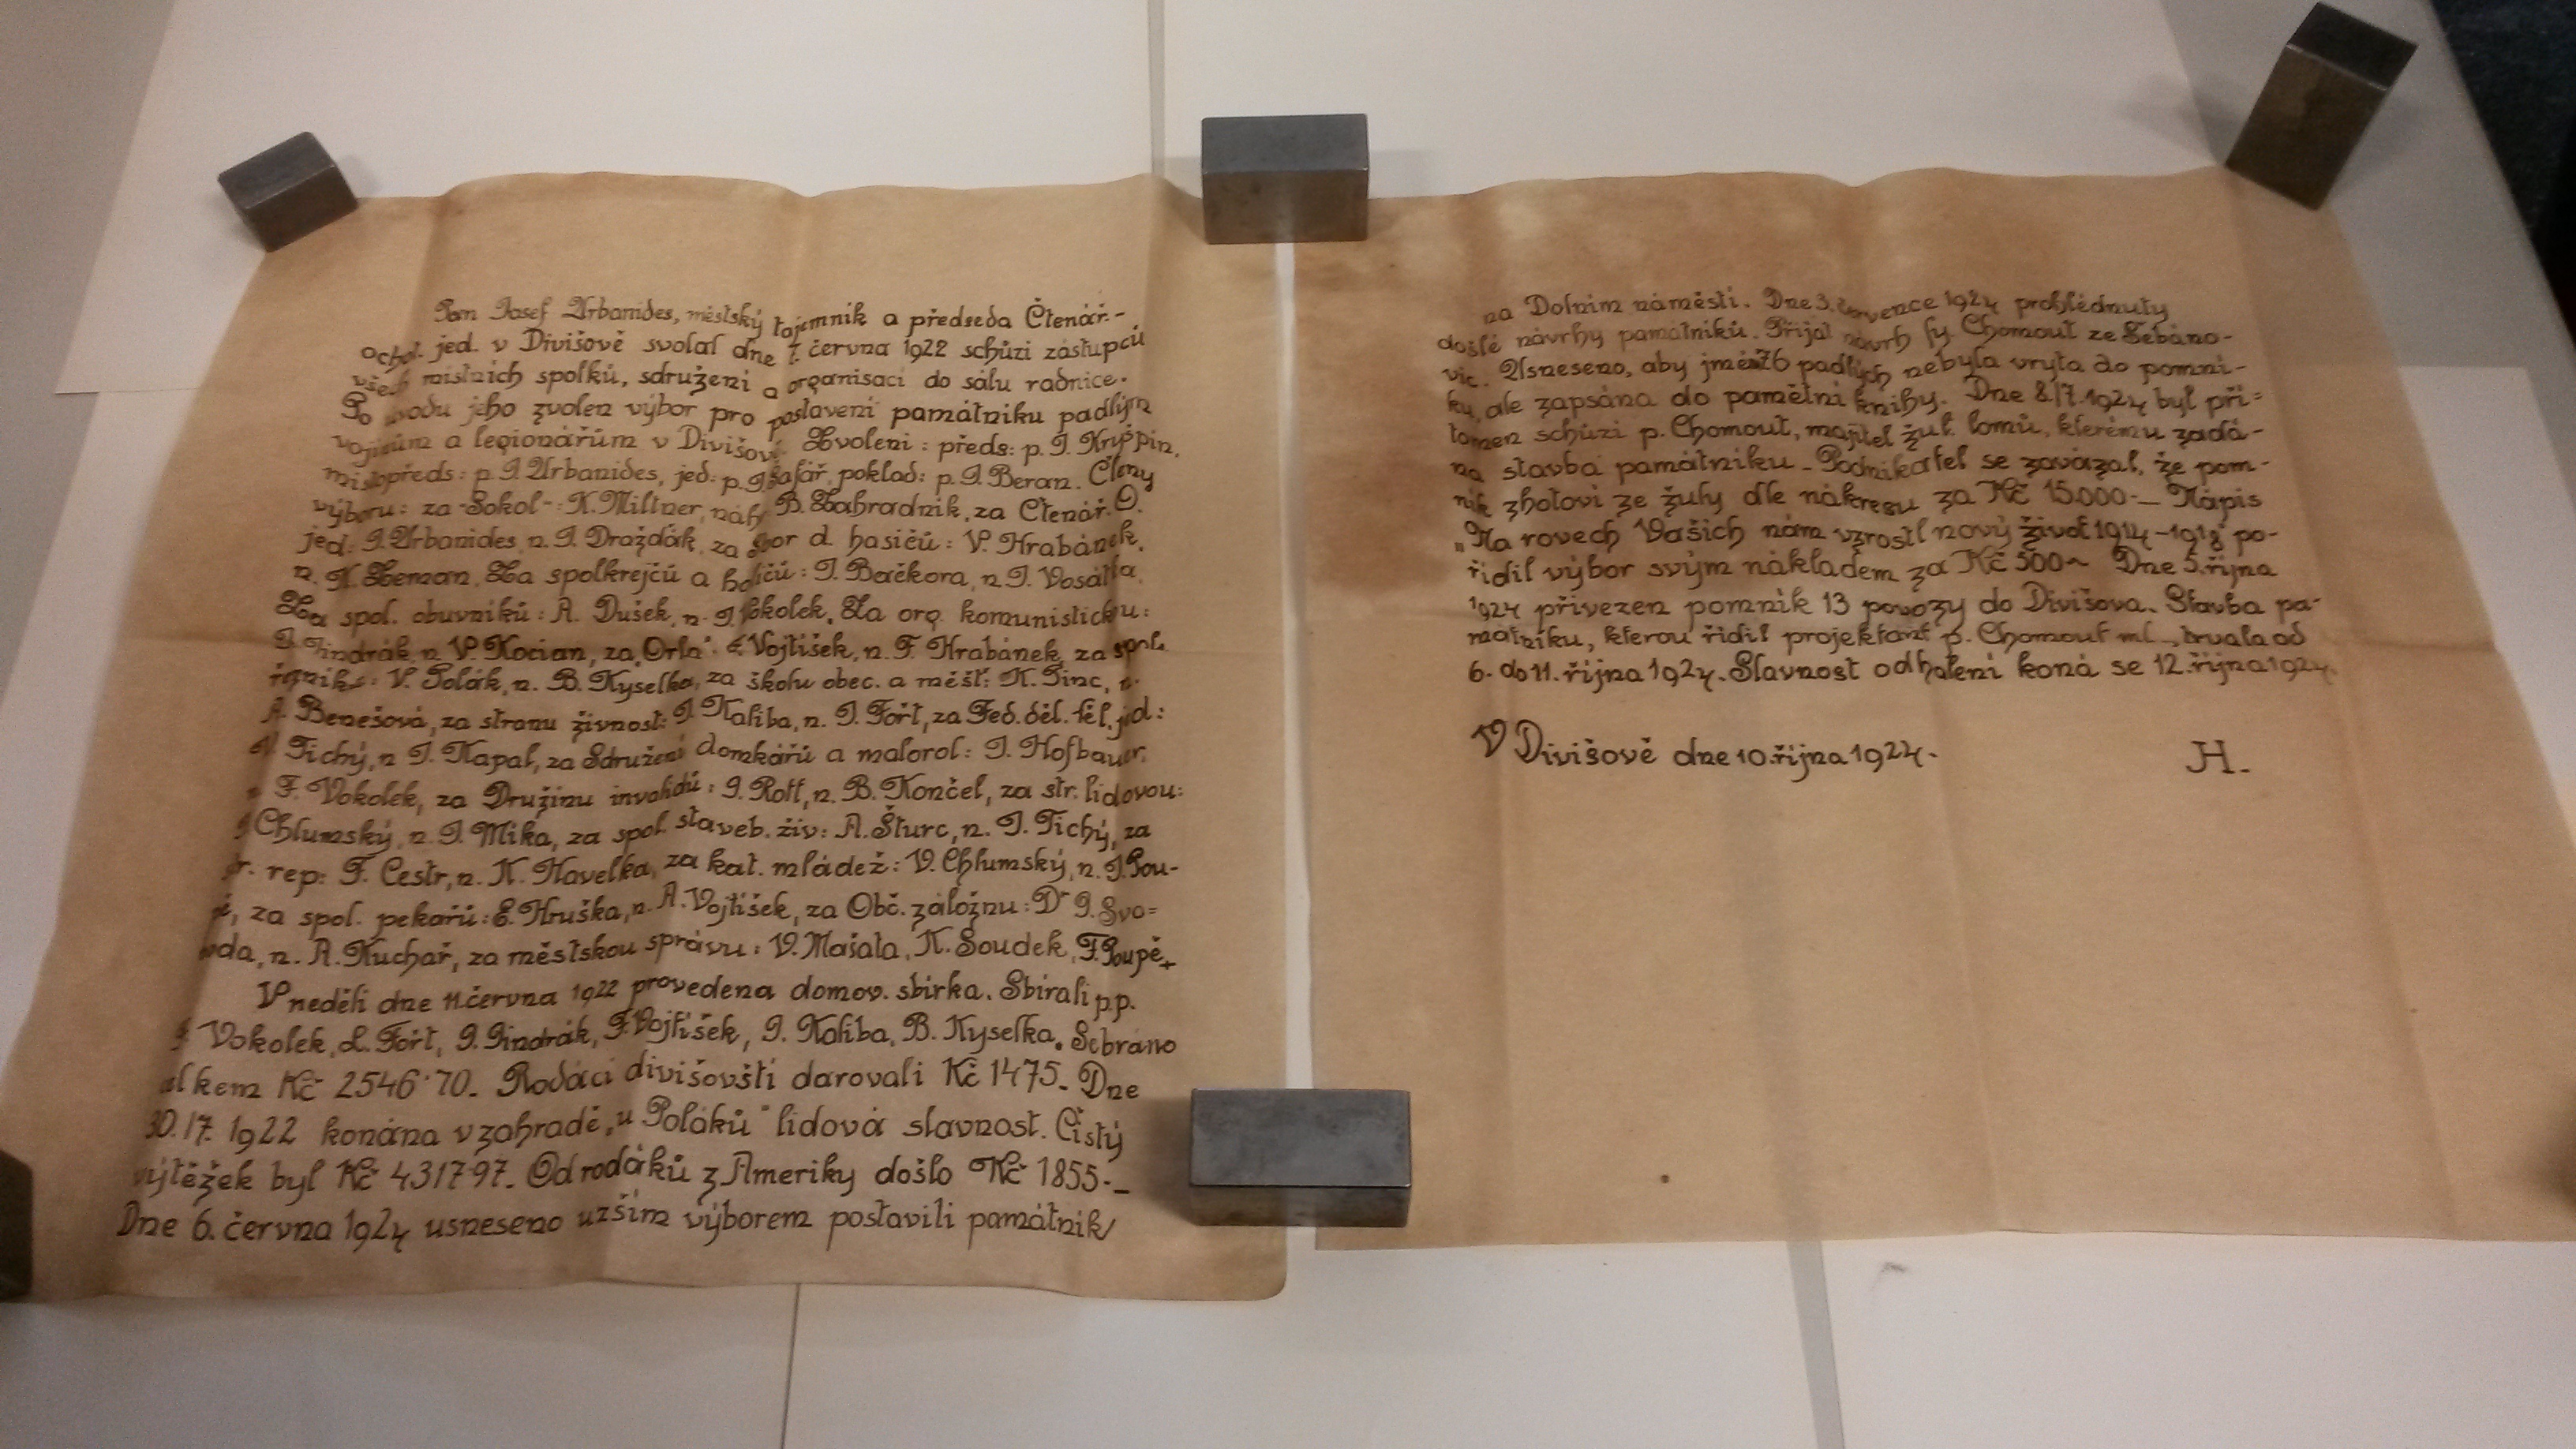 Pan Josef Urbanides, městský tajemník a předseda Čtenář.-
ochot. jed. v Divišově svolal dne 7. června 1922 schůzi zástupců
všech místních spolků, sdružení a organisací do sálu radnice.
Po jeho zvolen výbor pro postavení památníku padlým
vojínům a legionářům v Divišově. Zvoleni: předs: p. J. Krišpín,
místopředs: p. J. Urbanides, jed: p. J. Šafář, poklad: p. J. Beran. Členy
výboru: za "Sokol": K. Miltner, náhr. B. Zahradník, za Čtenář. O.
jed: J. Urbanides, n. J. Draždák, za sbor d. hasičů: V. Hrabánek,
n. K. Zeman. Za spol krejčů a holičů: J. Bačkora, n. J. Vosátka.
Za spol. obuvníků: A. Dušek, n. J. Vokolek. Za org. komunistickou:
J. Jindrák, n. V. Kocian, za "Orla": F. Vojtíšek, n. F. Hrabánek, za spol.
řezníků: V. Polák, n. B. Kyselka, za školu obec. a měšť: K. Pinc, n.
A. Benešová, za stranu živnost: J. Kaliba, n. J. Fořt, za Fed. děl. těl. jed:
Tichý, n J. Kapal, za Sdružení domkářů a malorol: J. Hofbauer,
n F. Vokolek, za Družinu invalidů: J. Rott, n. B. Končel, za str. lidovou:
J Chlumský, n. J. Mika, za spol. staveb. živ: A. Šturc, n. J. Tichý, za
str. rep: F. Cestr, n. K. Havelka, za kat. mládež: V. Chlumský, n. J. Pou-
pě, za spol. pekařů: E. Hruška, n. A. Vojtíšek, za Obč. záložnu: Dr J. Svo=
boda, n. A. Kuchař, za městskou správu: V. Mašata, K. Soudek, F. Poupě.
V neděli dne 11. června 1922 provedena domov. sbírka. Sbírali p.p.
F. Vokolek, L. Fořt, J. Jindrák, F. Vojtíšek, J. Kaliba, B. Kyselka. Sebráno
celkem Kč 2546·70. Rodáci divišovští darovali Kč 1475.- Dne
30./7. 1922 konána v zahradě „u Poláků" lidová slavnost. Čistý
výtěžek byl Kč 4317·97. Od rodáků z Ameriky došlo Kč 1855.-
Dne 6. června 1924 usneseno užším výborem postaviti památník
na Dolním náměstí. Dne 3. července 1924 prohlédnuty
došlé návrhy památníků. Přijat návrh fy. Chomout ze Šebáno-
vic. Usneseno, aby jména 76 padlých nebyla vryta do pomní-
ku, ale zapsána do pamětní knihy. Dne 8./7. 1924 byl pří=
tomen schůzi p. Chomout, majitel žul. lomů, kterému zadá-
na stavba památníku. Podnikatel se zavázal, že pom-
ník zhotoví ze žuly dle nákresu za Kč 15.000·- Nápis
„Na rovech Vašich nám vzrostl nový život 1914-1918" po-
řídil výbor svým nákladem za Kč 500~ Dne 5. října
1924 přivezen pomník 13 povozy do Divišova. Stavba pa-
mátníku, kterou řídil projektant p. Chomout ml., trvala od
6. do 11. října 1924. Slavnost odhalení koná se 12. října 1924.
V Divišově dne 10. října 1924.
H.